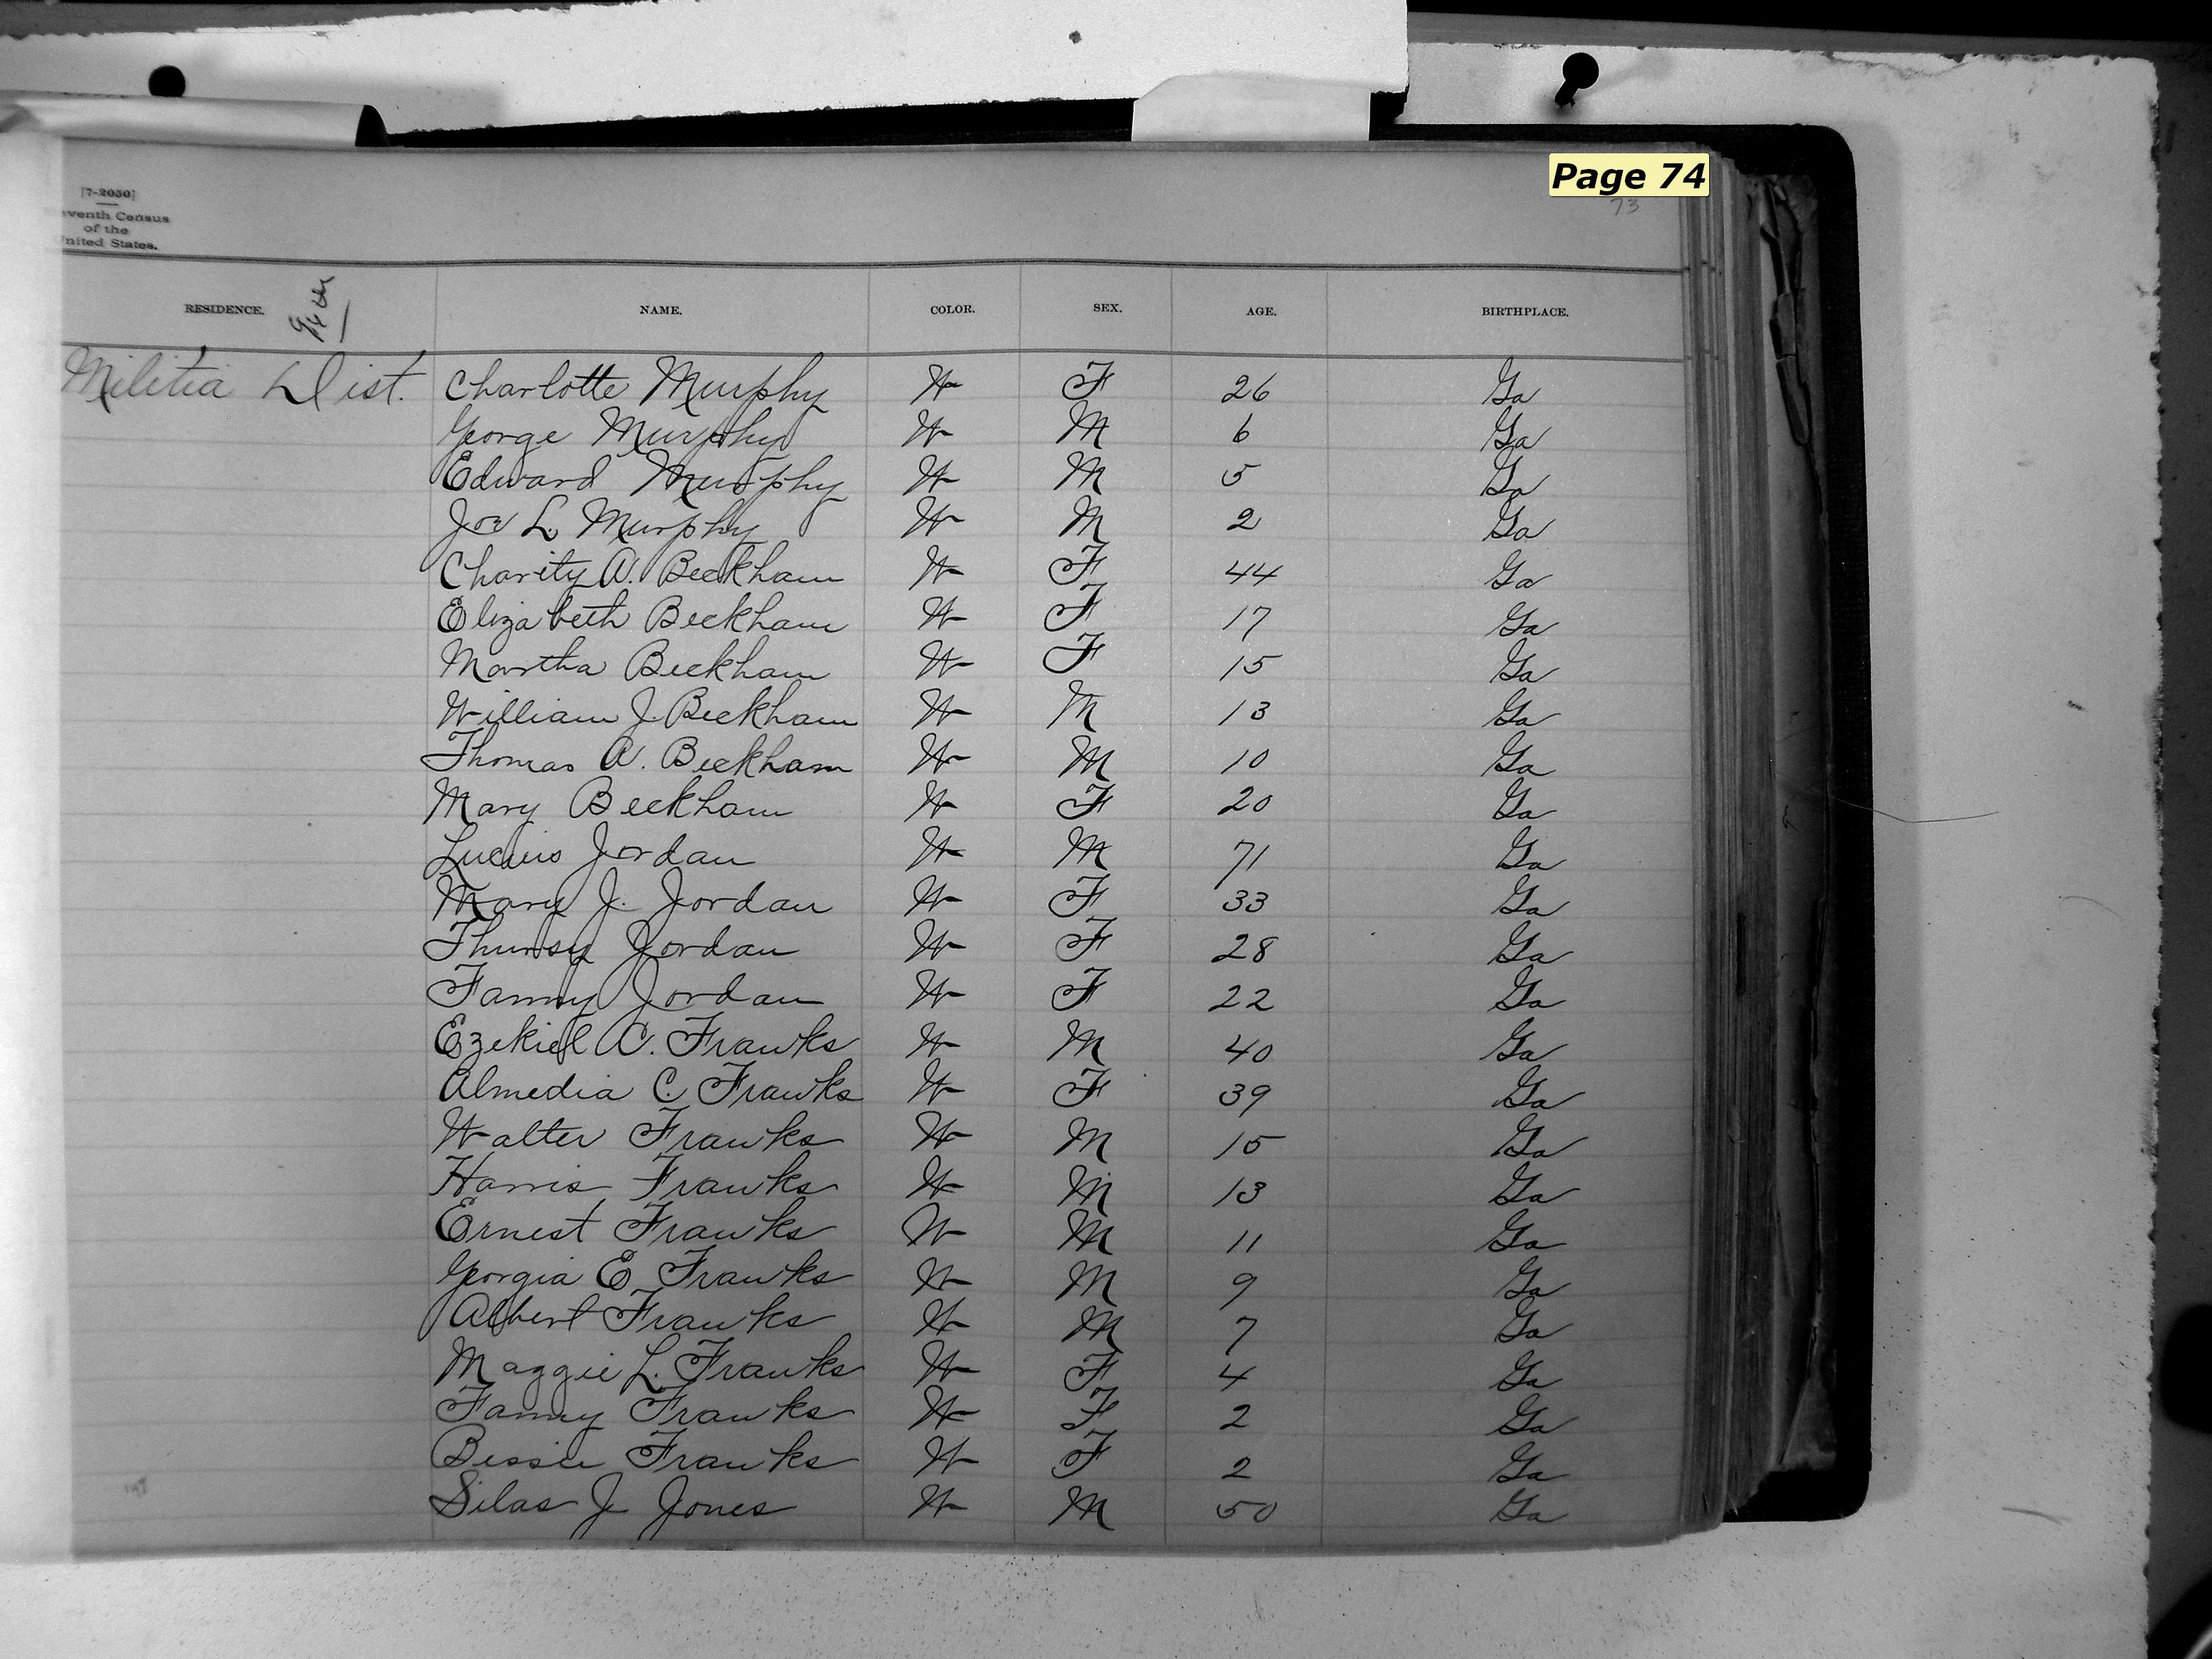 Page 74
73
[7-2050]
eventh Census
of the
United States.
RESIDENCE. NAME. COLOR. SEX. AGE. BIRTHPLACE.
Militia Dist. Charlotte Murphy W F 26 Ga
George Murphy W M 6 Ga
Edward Murphy W M 5 Ga
Joe L. Murphy W M 2 Ga
Charity A. Beekham W F 44 Ga
Elizabeth Beekham W F 17 Ga
Martha Beekham W F 15 Ga
William J. Beekham W M 13 Ga
Thomas A. Beekham W M 10 Ga
Mary Beekham W F 20 Ga
Lucius Jordan W M 71 Ga
Mary J. Jordan W F 33 Ga
Thursy Jordan W F 28 Ga
Fanny Jordan W F 22 Ga
Ezekiel C. Franks W M 40 Ga
Almedia C. Franks W F 39 Ga
Walter Franks W M 15 Ga
Harris Franks W M 13 Ga
Ernest Franks W M 11 Ga
Georgia E. Franks W M 9 Ga
Albert Franks W M 7 Ga
Maggie L. Franks W F 4 Ga
Fanny Franks W F 2 Ga
Bessie Franks W F 2 Ga
Silas J Jones W M 50 Ga